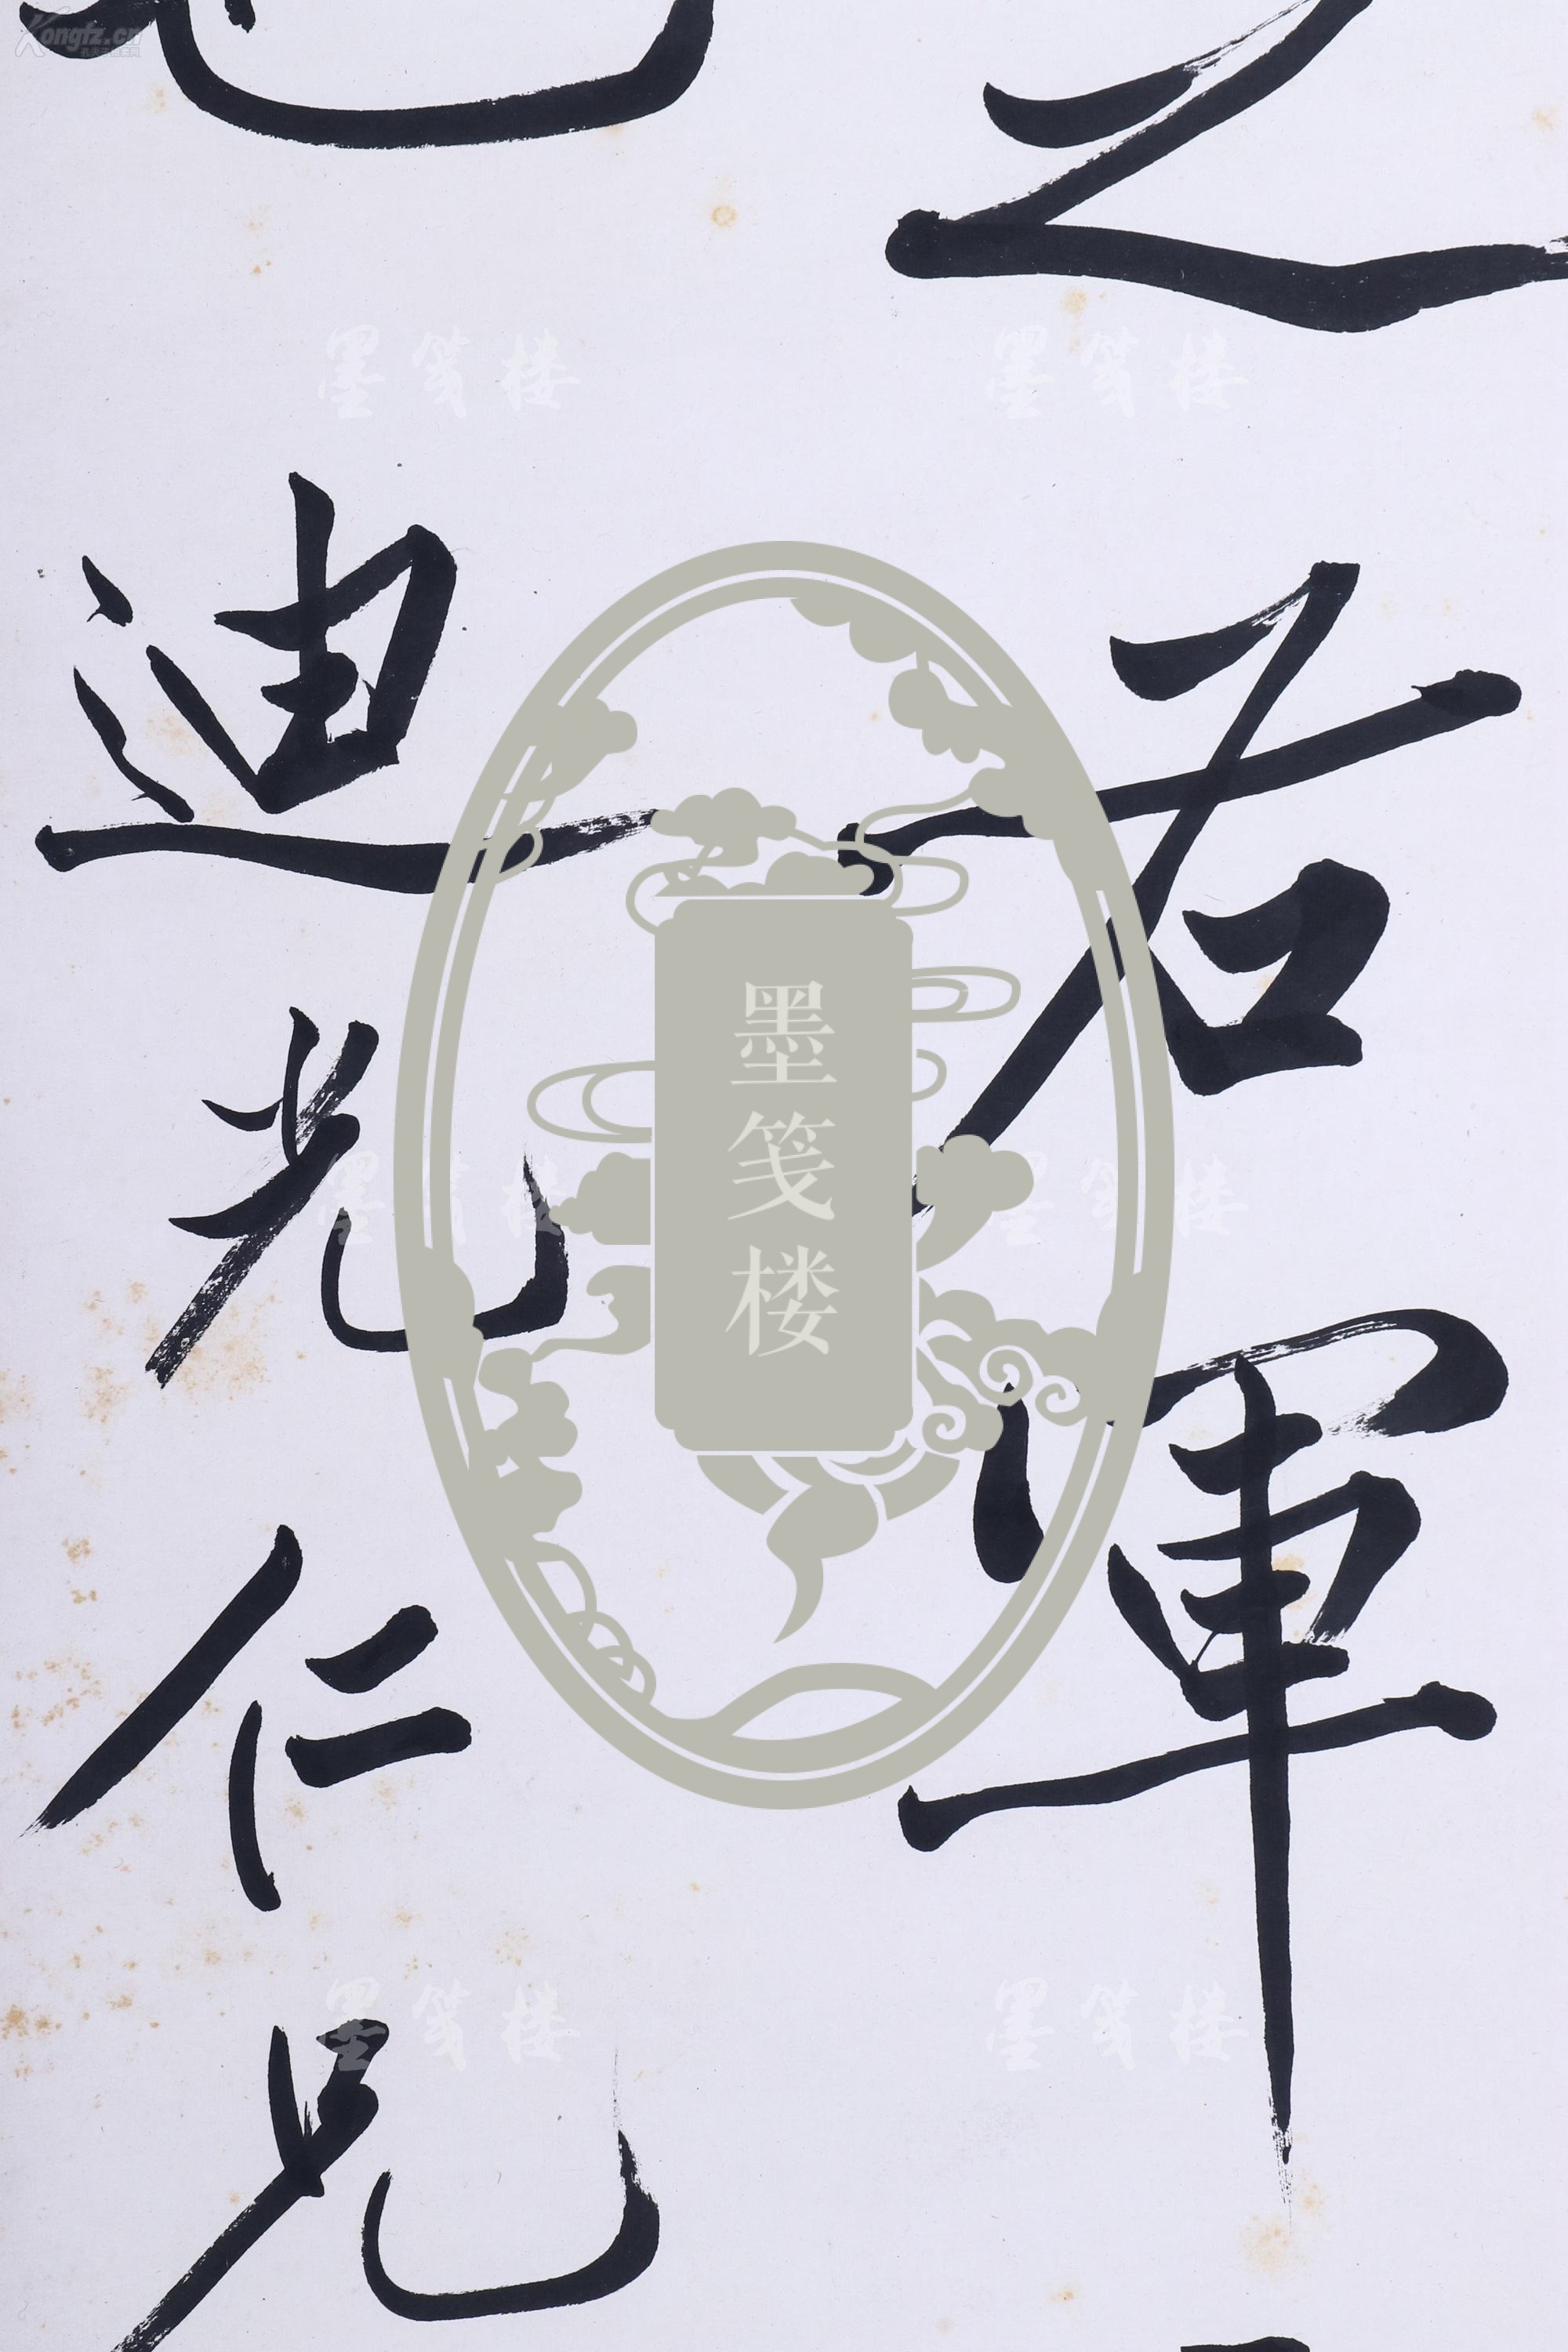 之右軍
迪光仁兄
墨笺楼
墨笺楼
墨笺楼
墨笺楼
墨笺楼
墨笺楼
墨笺楼
Kongfz.cn